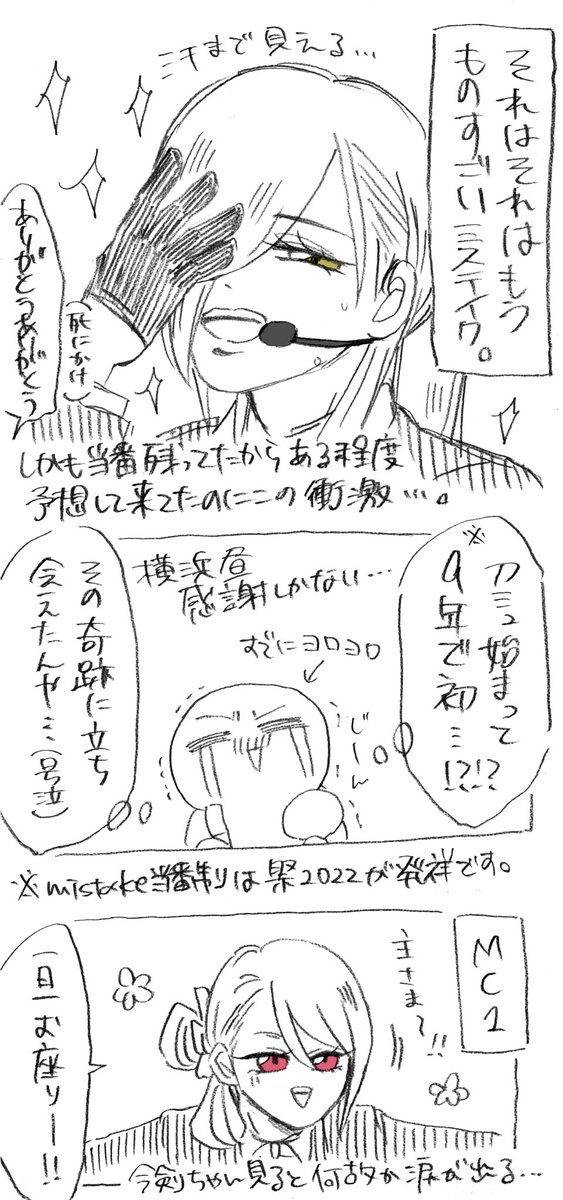 それはそれはもう
ものすごいミステイク。
ミ汗まで見える…
ありがとうありがとう
(死にかけ)
しかも当番残ってたからある程度
予想して来てたのにこの衝激…。
※
刀ミュ始まって
9年で初…!?!?
横浜昼
感謝しかない…
すでにヨロヨロ
じーん
その奇跡に立ち
会えたんや…(号泣)
※mistake当番制りは祭2022が発祥です。
MC1
主さま〜!!
一旦お座りー!!
今剣ちゃん見ると何故か涙が出る…